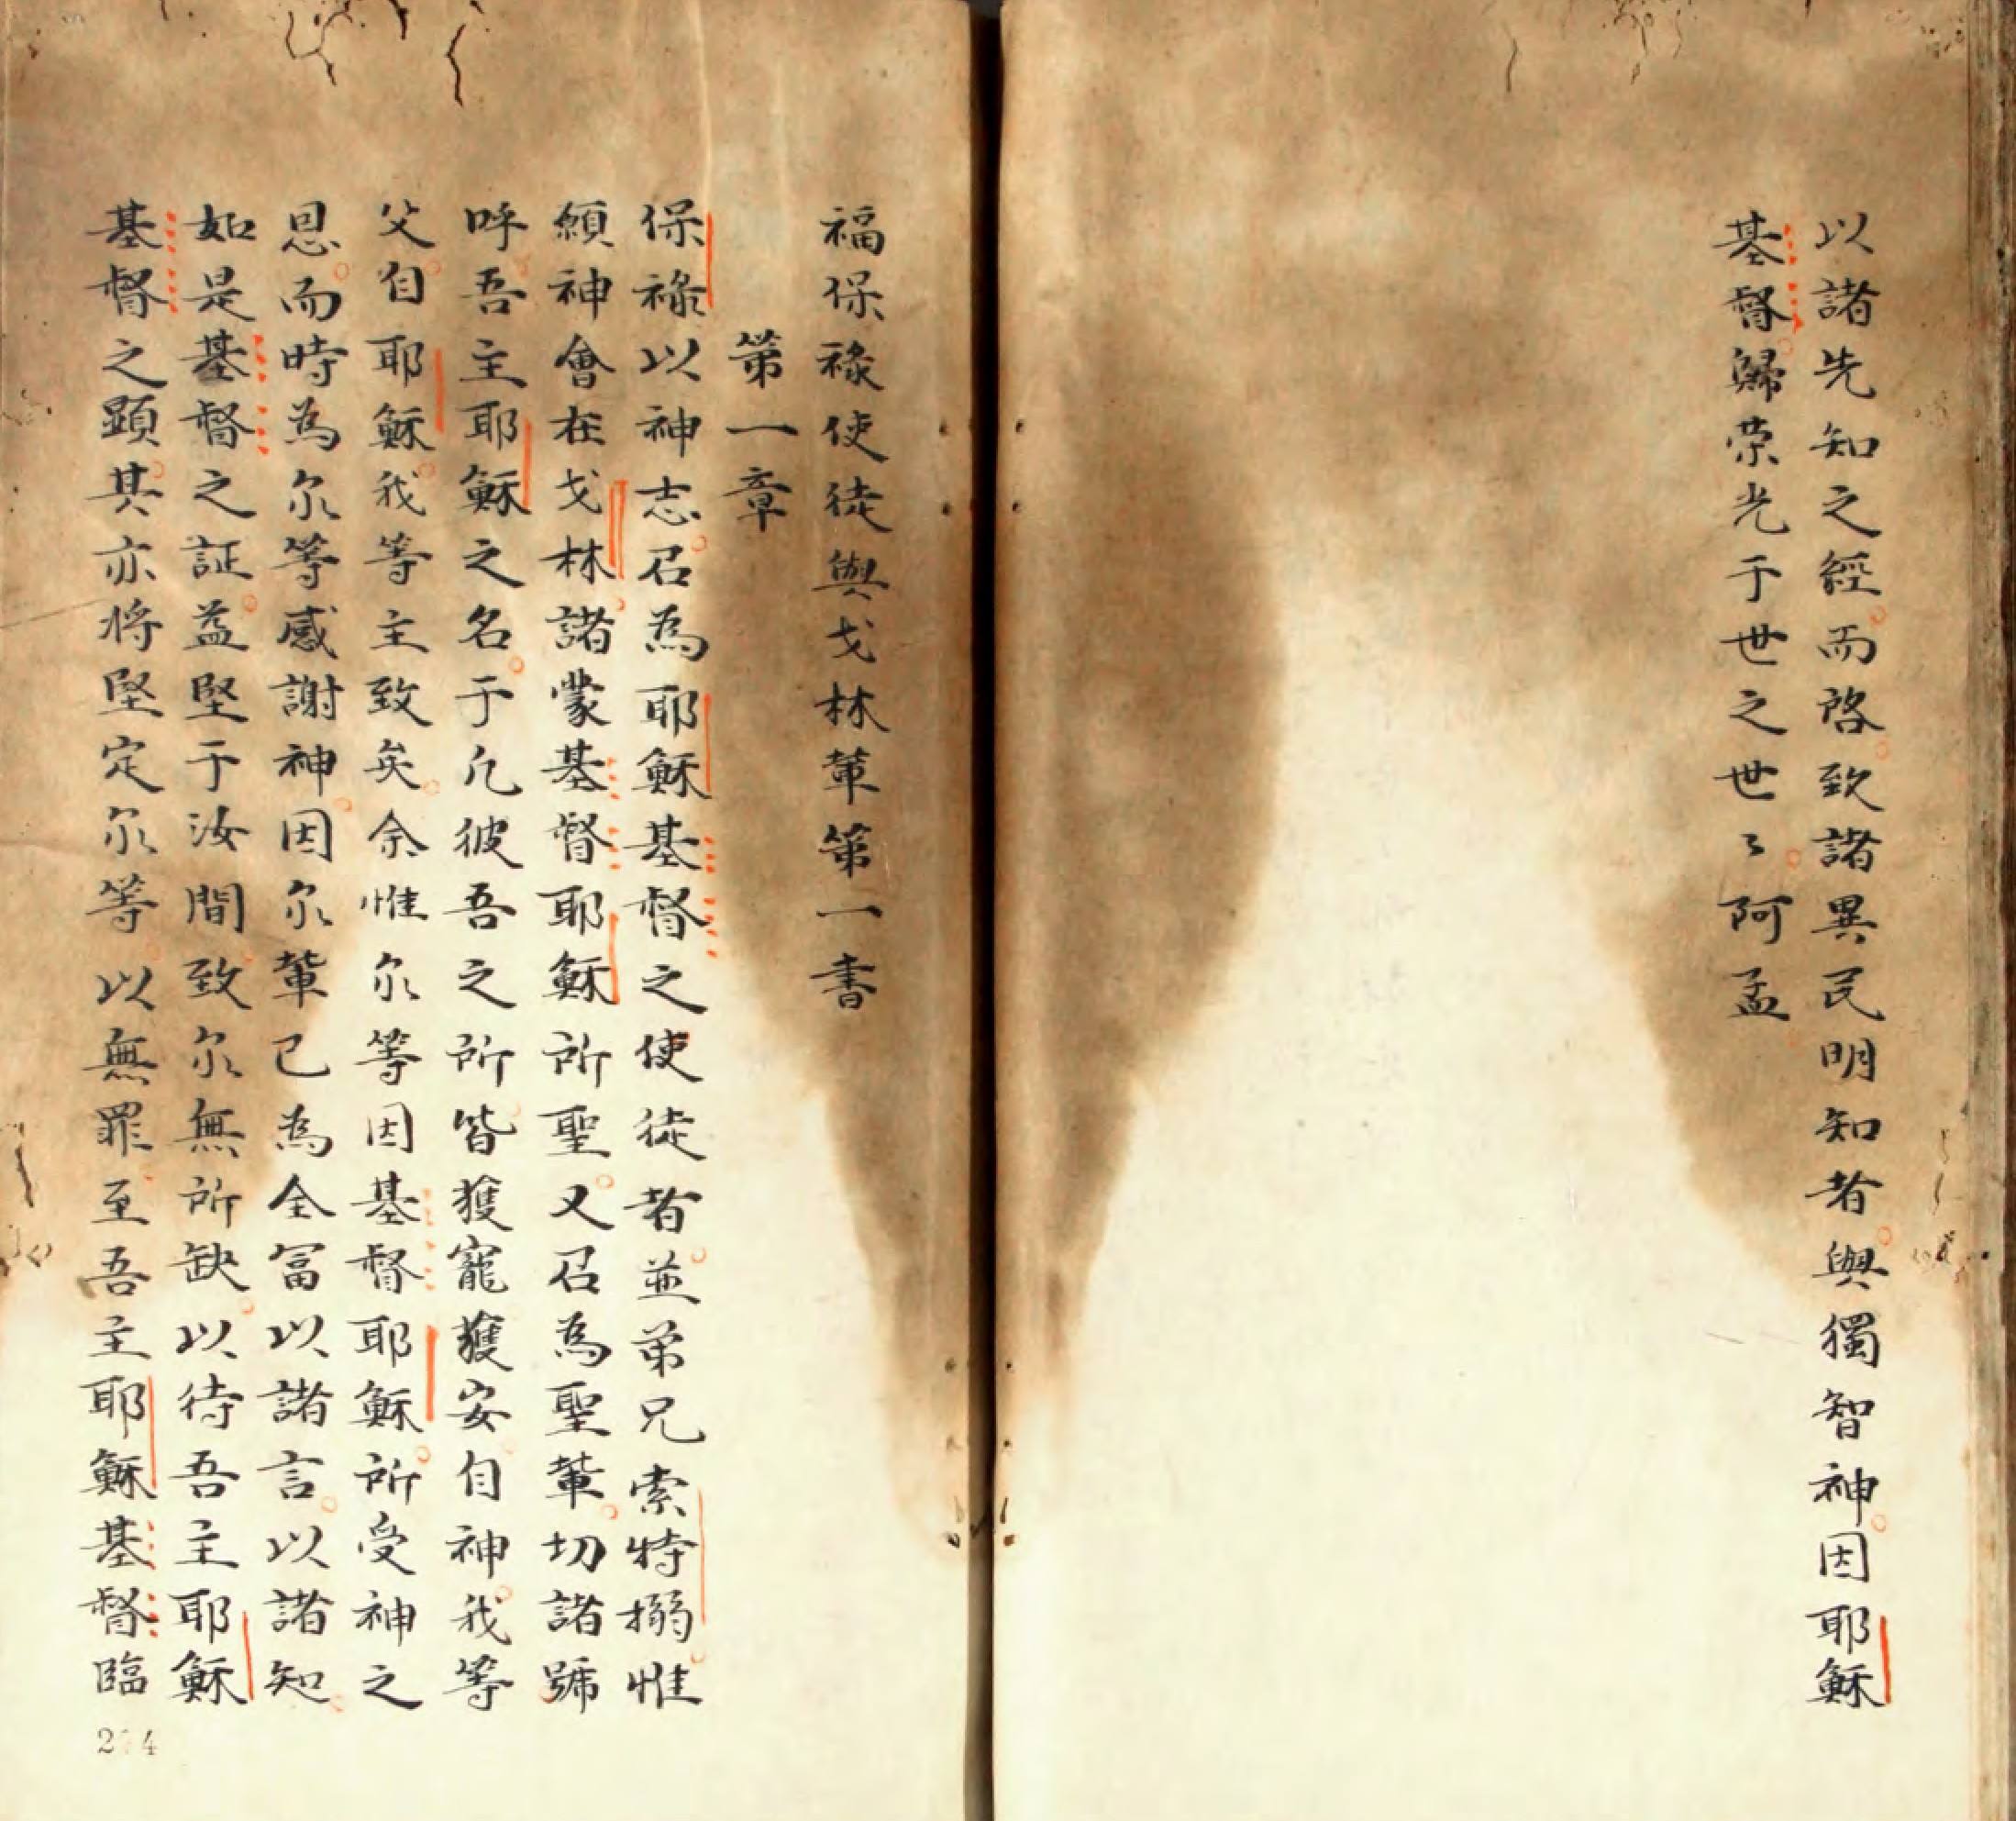 以諸先知之經而啓致諸異民明知者與獨智神因耶穌
基督歸荣光于世之世〻阿孟
福保祿使徒與戈林輩第一書
第一章
保祿以神志召為耶穌基督之使徒者並弟兄索特搦惟
願神會在戈林諸蒙基督耶穌所聖又召為聖輩切諸號
呼吾主耶穌之名于凢彼吾之所皆獲寵獲安自神我等
父自耶穌我等主致矣余惟尔等因基督耶穌所受神之
恩而時為尔等感謝神因尔輩已為全冨以諸言以諸知
如是基督之証益堅于汝間致尔無所缺以待吾主耶穌
基督之顕其亦将堅定尔等以無罪至吾主耶穌基督臨